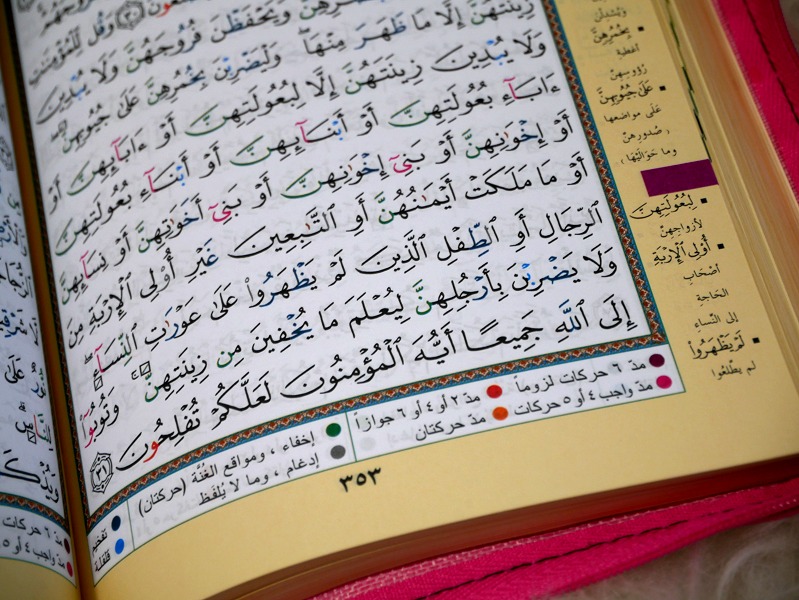 وَقُل لِّلْمُؤْمِنَٰتِ
وَيَحْفَظْنَ فُرُوجَهُنَّ وَلَا يُبْدِينَ
زِينَتَهُنَّ إِلَّا مَا ظَهَرَ مِنْهَا ۖ وَلْيَضْرِبْنَ بِخُمُرِهِنَّ عَلَىٰ جُيُوبِهِنَّ ۖ
وَلَا يُبْدِينَ زِينَتَهُنَّ إِلَّا لِبُعُولَتِهِنَّ أَوْ ءَابَآئِهِنَّ أَوْ
ءَابَآءِ بُعُولَتِهِنَّ أَوْ أَبْنَآئِهِنَّ أَوْ أَبْنَآءِ بُعُولَتِهِنَّ
أَوْ إِخْوَٰنِهِنَّ أَوْ بَنِىٓ إِخْوَٰنِهِنَّ أَوْ بَنِىٓ أَخَوَٰتِهِنَّ أَوْ نِسَآئِهِنَّ
أَوْ مَا مَلَكَتْ أَيْمَٰنُهُنَّ أَوِ ٱلتَّٰبِعِينَ غَيْرِ أُو۟لِى ٱلْإِرْبَةِ مِنَ
ٱلرِّجَالِ أَوِ ٱلطِّفْلِ ٱلَّذِينَ لَمْ يَظْهَرُوا۟ عَلَىٰ عَوْرَٰتِ ٱلنِّسَآءِ ۖ
وَلَا يَضْرِبْنَ بِأَرْجُلِهِنَّ لِيُعْلَمَ مَا يُخْفِينَ مِن زِينَتِهِنَّ ۚ وَتُوبُوٓا۟
إِلَى ٱللَّهِ جَمِيعًا أَيُّهَ ٱلْمُؤْمِنُونَ لَعَلَّكُمْ تُفْلِحُونَ ٣١
بِخُمُرِهِنَّ
أغطية
رُؤوسِهنّ
عَلَىٰ جُيُوبِهِنَّ
على مواضعها
(صُدورِهنّ
وما حَوَالَيْها)
لِبُعُولَتِهِنَّ
لأزواجِهنّ
أُو۟لِى ٱلْإِرْبَةِ
أصْحَابِ
الحَاجَةِ
إلى النّساءِ
لَمْ يَظْهَرُوا۟
لم يطّلعُوا
مدّ ٦ حركات لزوماً
مدّ واجب ٤ أو ٥ حركات
مدّ ٢ أو ٤ أو ٦ جوازاً
مدّ حركتان
إخفاء ، ومواقع الغُنَّة (حركتان)
إدغام ، وما لا يُلفَظ
تفخيم
قلقلة
٣٥٣